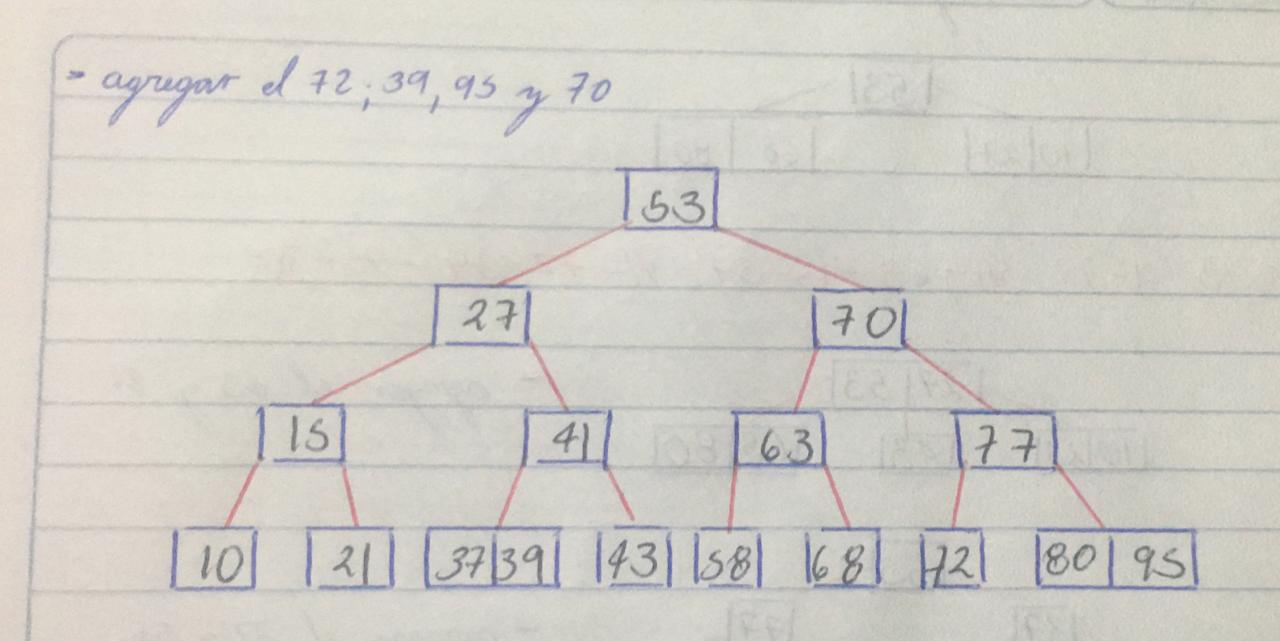 - agregar el 72; 39, 95 y 70
53
27 70
15 41 63 77
10 21 37 39 43 58 68 72 80 95